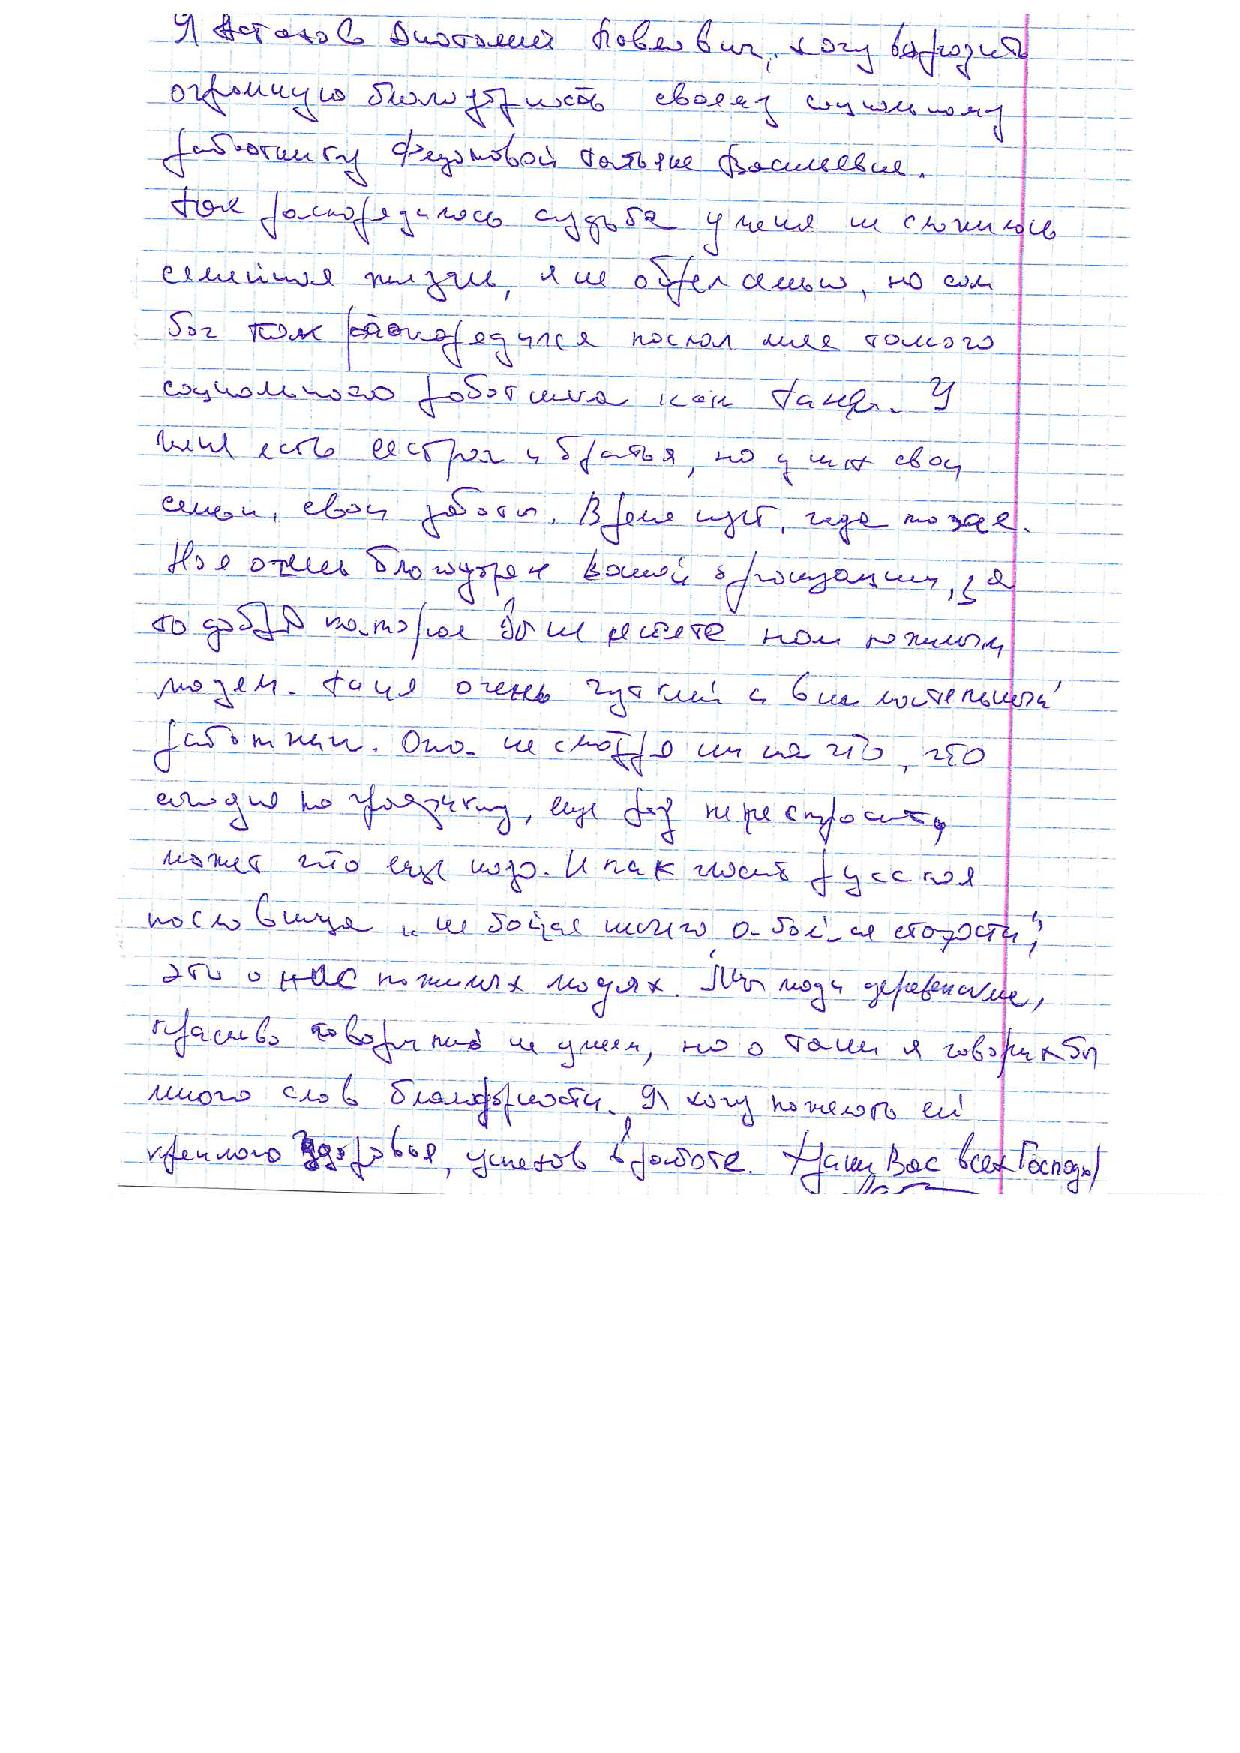 Я Астахов Анатолий Павлович, хочу выразить
огромную благодарность своему социальному
работнику Федяковой Татьяне Васильевне.
Так распорядилась судьба у меня не сложилась
семейная жизнь, я не обрел семью, но сам
бог так распорядился послал мне такого
социального работника как Таня. У
меня есть сестра и братья, но у них свои
семьи, свои заботы. Время идет, года тоже.
Но я очень благодарен вашей организации, за
то добро которое Вы несете нам пожилым
людям. Таня очень чуткий и внимательный
работник. Она не смотря ни на что, что
сегодня по графику, еще раз переспросит
может что еще надо. И как гласит русская
пословица „не бойся много а бойся старости",
это о нас пожилых людях. Мы люди деревенские,
красиво говорить не умеем, но о Тани я говорил бы
много слов благодарности. Я хочу пожелать ей
крепкого здоровья, успехов в работе. Храни Вас всех Господь!